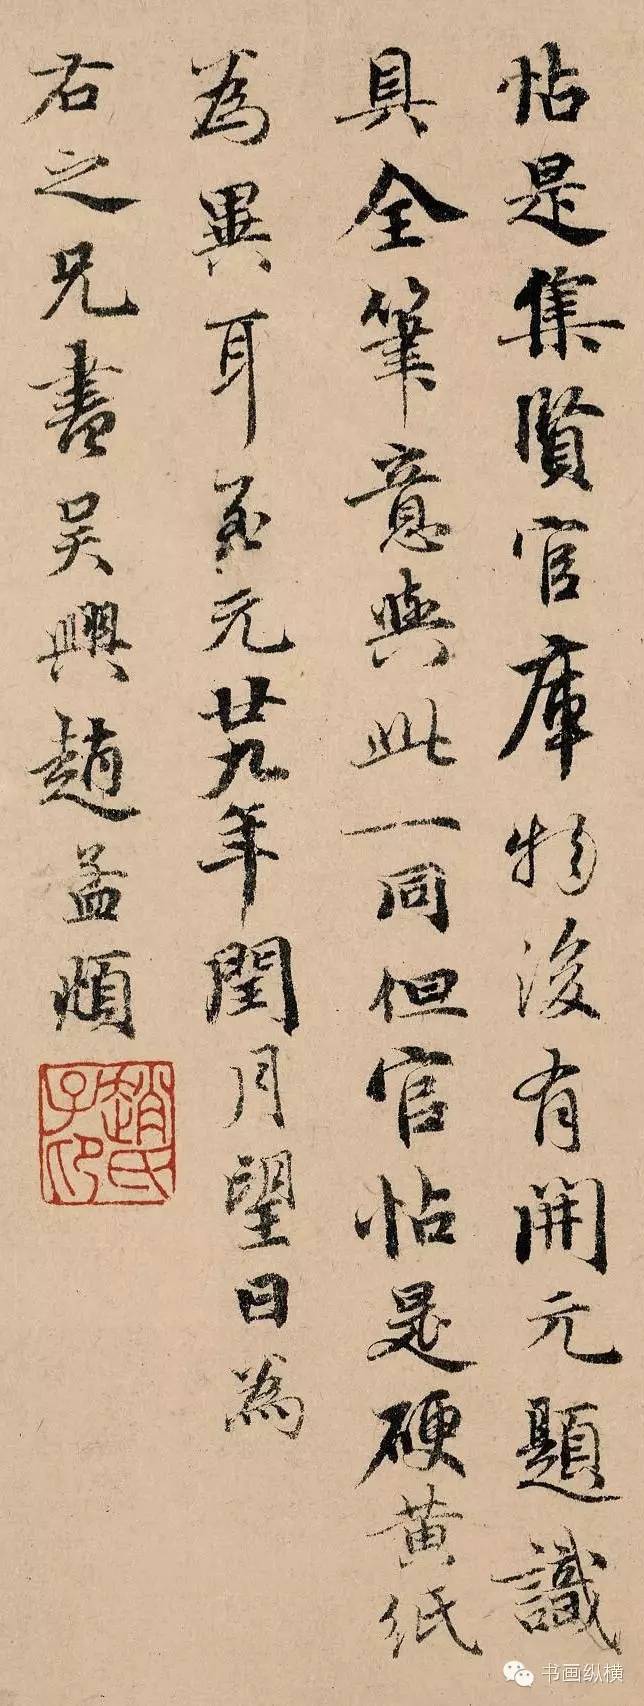 帖是集賢官庫物後有開元題識
具全筆意與此一同但官帖是硬黄紙
為異耳至元廿九年閏月望日為
右之兄書吴興趙孟頫
趙氏子印
书画纵横